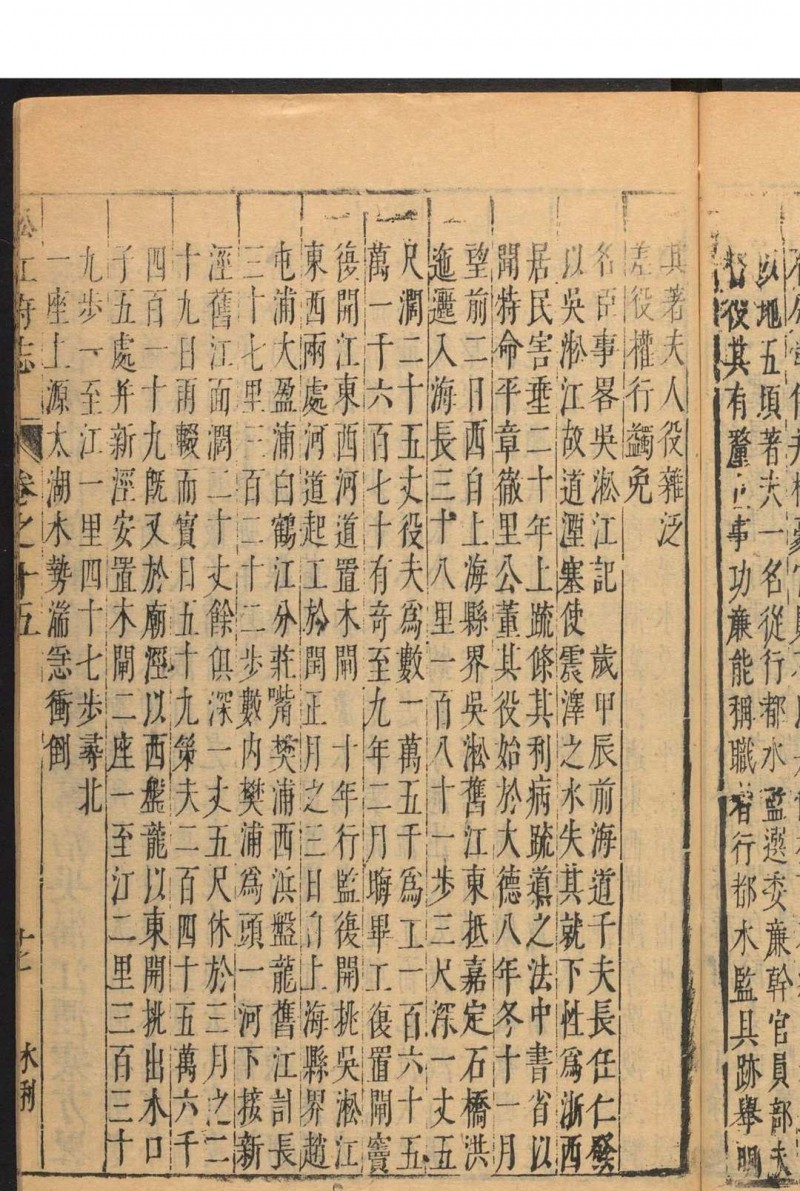 以地五頃著夫一名從行都水監選委廉幹官員部夫
督役其有釐正事功廉能稱職者行都水監具跡舉明
其著夫人役雜泛
差役權行蠲免
名臣事畧吳淞江記 歲甲辰前海道千夫長任仁發
以吳淞江故道湮塞使震澤之水失其就下性爲浙西
居民害垂二十年上疏條其利病疏導之法中書省以
聞特命平章徹里公董其役始於大德八年冬十一月
望前二日西自上海縣界吳淞舊江東抵嘉定石橋洪
迤邐入海長三十八里一百八十一步三尺深一丈五
尺濶二十五丈役夫爲數一萬五千爲工一百六十五
萬一千六百七十有奇至九年二月晦畢工復置閘竇
後開江東西河道置木閘 十年行監復開挑吳淞江
東西兩處河道起工於閏正月之三日自上海縣界趙
屯浦大盈浦白鶴江分莊嘴樊浦西浜盤龍舊江計長
三十七里三百二十二步數內樊浦爲頭一河下接新
涇舊江面濶二十丈餘俱深一丈五尺休於三月之二
十九日雨輟而實日五十九策夫二百四十五萬六千
四百一十九旣又於廟涇以西盤龍以東開挑出水口
子五處并新涇安置木閘二座一至江二里三百三十
九步一至江一里四十七步尋北
一座上源太湖水勢湍急衝倒
松江府志 卷之十五 水利